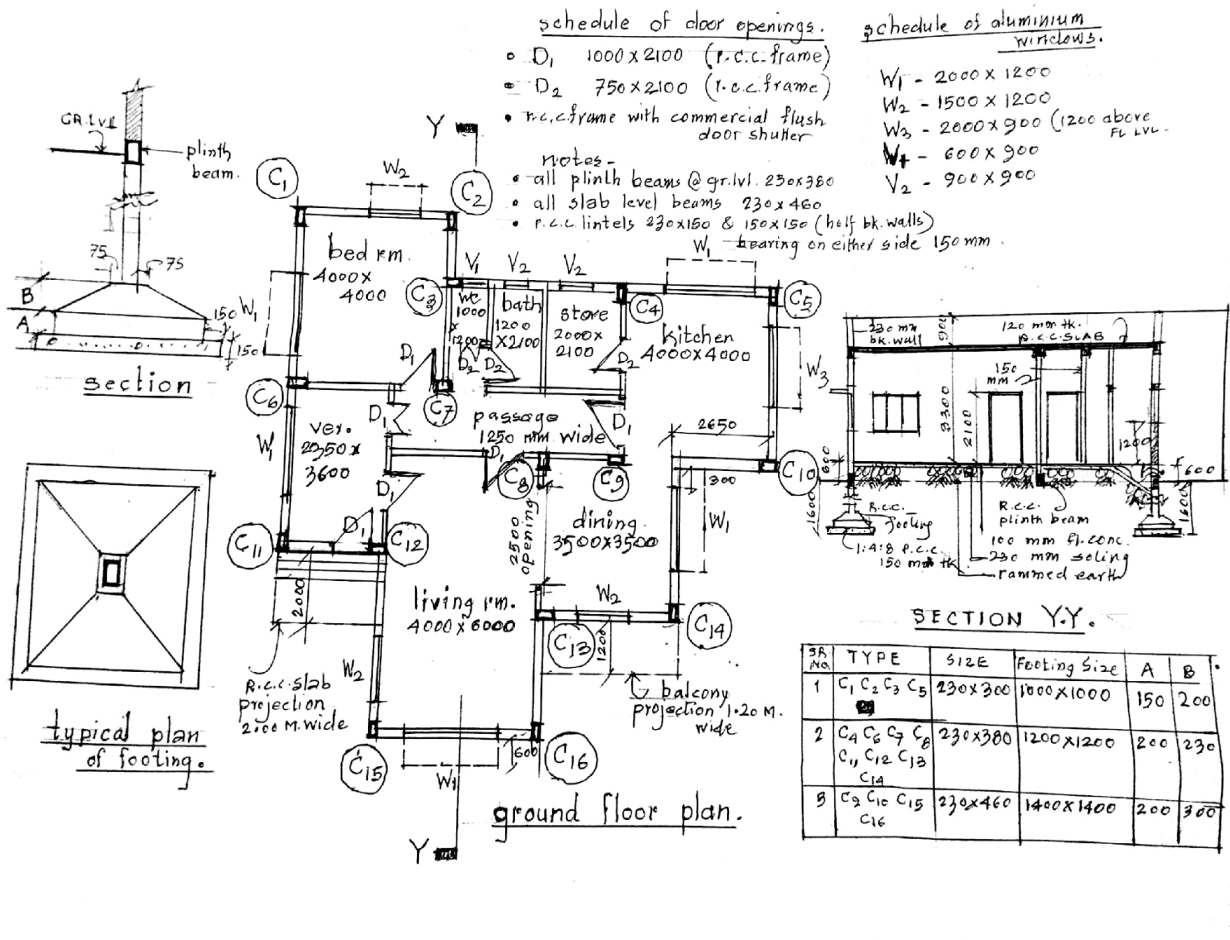 schedule of door openings.
D1 1000 x 2100 (r.c.c. frame)
D2 750 x 2100 (r.c.c. frame)
r.c.c frame with commercial flush
door shutter
schedule of aluminium
windows.
W1 - 2000 x 1200
W2 - 1500 x 1200
W3 - 2000 x 900 (1200 above
FL LVL.
- 600 x 900
V2 - 900 x 900
notes-
all plinth beams @ gr.lvl. 230x380
all slab level beams 230 x 460
r.c.c lintels 230x150 & 150x150 (half bk. walls)
bearing on either side 150 mm.
GR.LVL
plinth
beam.
75
75
B
A
150
150
section
Y
C1
W2
C2
bed rm.
4000 x
4000
W1
C3
V1
V2
V2
W1
C4
C5
WC
1000
x
1200
bath
1200
x2100
store
2000 x
2100
kitchen
4000 x 4000
W3
D1
D2
D2
D2
C6
C7
D1
passage
1250 mm wide
D1
2650
W1
ver.
2350 x
3600
D1
C8
C9
C10
300
D1
W1
C11
D1
C12
2500
opening
dining
3500 x 3500
2000
living rm.
4000 x 6000
W2
C13
C14
1200
W2
R.c.c. slab
projection
2.00 M. wide
balcony
projection 1.20 M.
wide
C15
W1
600
C16
ground floor plan.
Y
typical plan
of footing.
230 mm
bk. wall
900
120 mm tk.
R.C.C. SLAB
150
mm
3300
2100
1200
600
600
1600
1600
R.C.C.
footing
1:4:8 P.C.C.
150 mm tk
R.C.C.
plinth beam
100 mm fl. conc.
230 mm soling
rammed earth
SECTION Y.Y.
SR. No. TYPE SIZE Footing Size A B
1 C1 C2 C3 C5 230 x 300 1000 x 1000 150 200
2 C4 C6 C7 C8 230 x 380 1200 x 1200 200 230
C11 C12 C13
C14
3 C9 C10 C15 230 x 460 1400 x 1400 200 300
C16